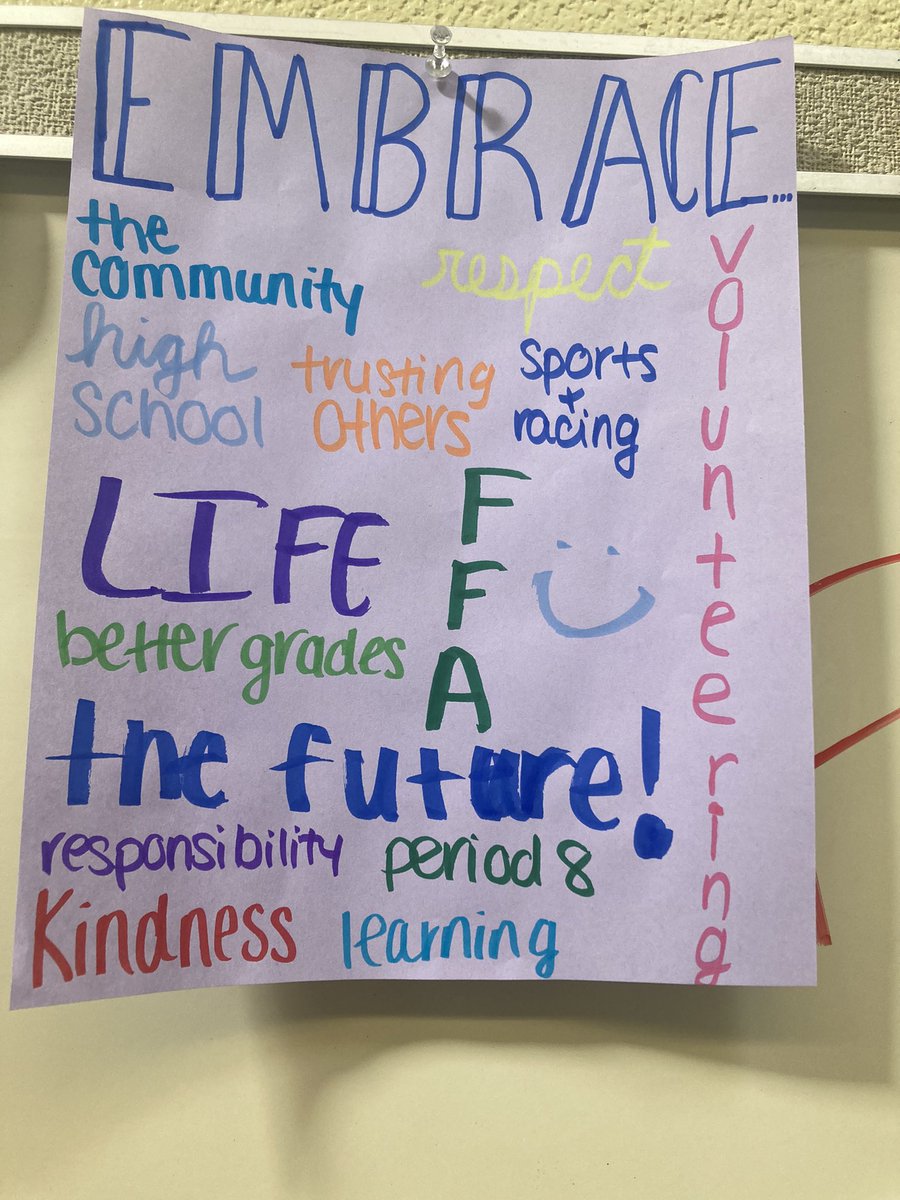 EMBRACE...
the
community
respect
volunteering
high
school
trusting
others
sports
+
racing
LIFE
FFA
better grades
the future!
responsibility
period 8
Kindness
learning